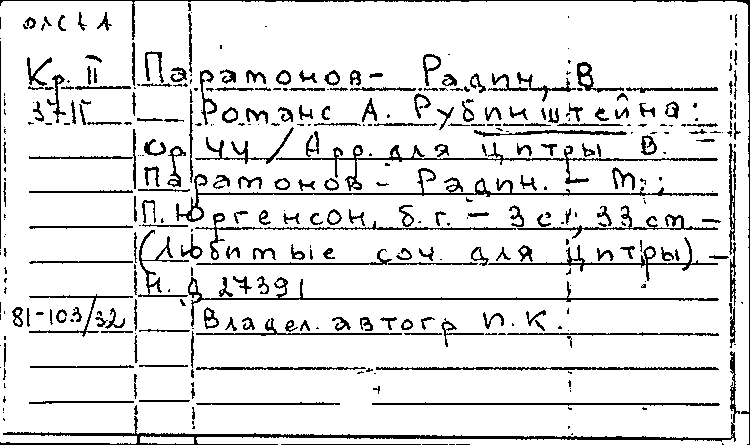 Кр. II Парамонов - Радин, В
37/II Романс А. Рубинштейна:
ор 44 / Арр. для цитры В.
Парамонов - Радин. - М.;
П. Юргенсон, б. г. - 3 с.; 33 см. -
(Любимые соч. для цитры). -
Н. д 27391
81-103/32 Владел. автогр П. К.